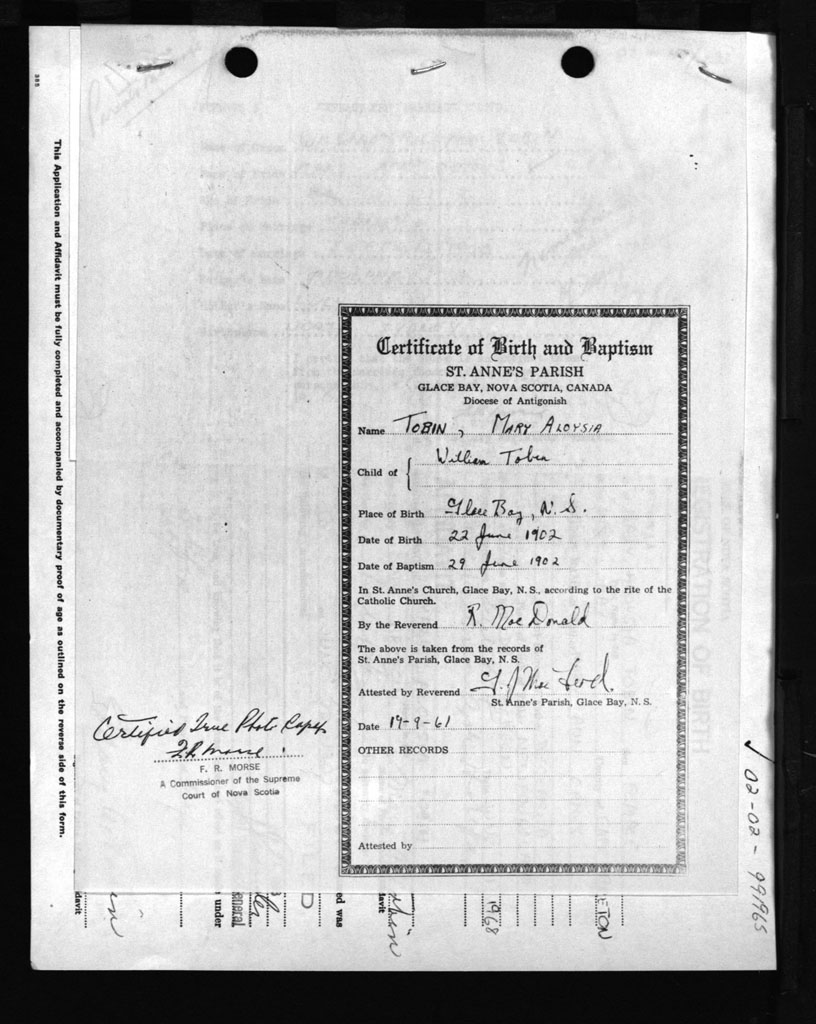 385
This Application and Affidavit must be fully completed and accompanied by documentary proof of age as outlined on the reverse side of this form.
Certificate of Birth and Baptism
ST. ANNE'S PARISH
GLACE BAY, NOVA SCOTIA, CANADA
Diocese of Antigonish
Name TOBIN, MARY ALOYSIA
Child of { William Tobin
Place of Birth Glace Bay, N. S.
Date of Birth 22 June 1902
Date of Baptism 29 June 1902
In St. Anne's Church, Glace Bay, N. S., according to the rite of the
Catholic Church.
By the Reverend R. MacDonald
The above is taken from the records of
St. Anne's Parish, Glace Bay, N. S.
Attested by Reverend
St. Anne's Parish, Glace Bay, N. S.
Date 19-9-61
OTHER RECORDS
Attested by
Certified True Photo Copy
F. R. Morse
F. R. MORSE
A Commissioner of the Supreme
Court of Nova Scotia
02-02-99965
davit
under
eneral
D
ed was
davit
1968
ETON
REGISTRATION OF BIRTH